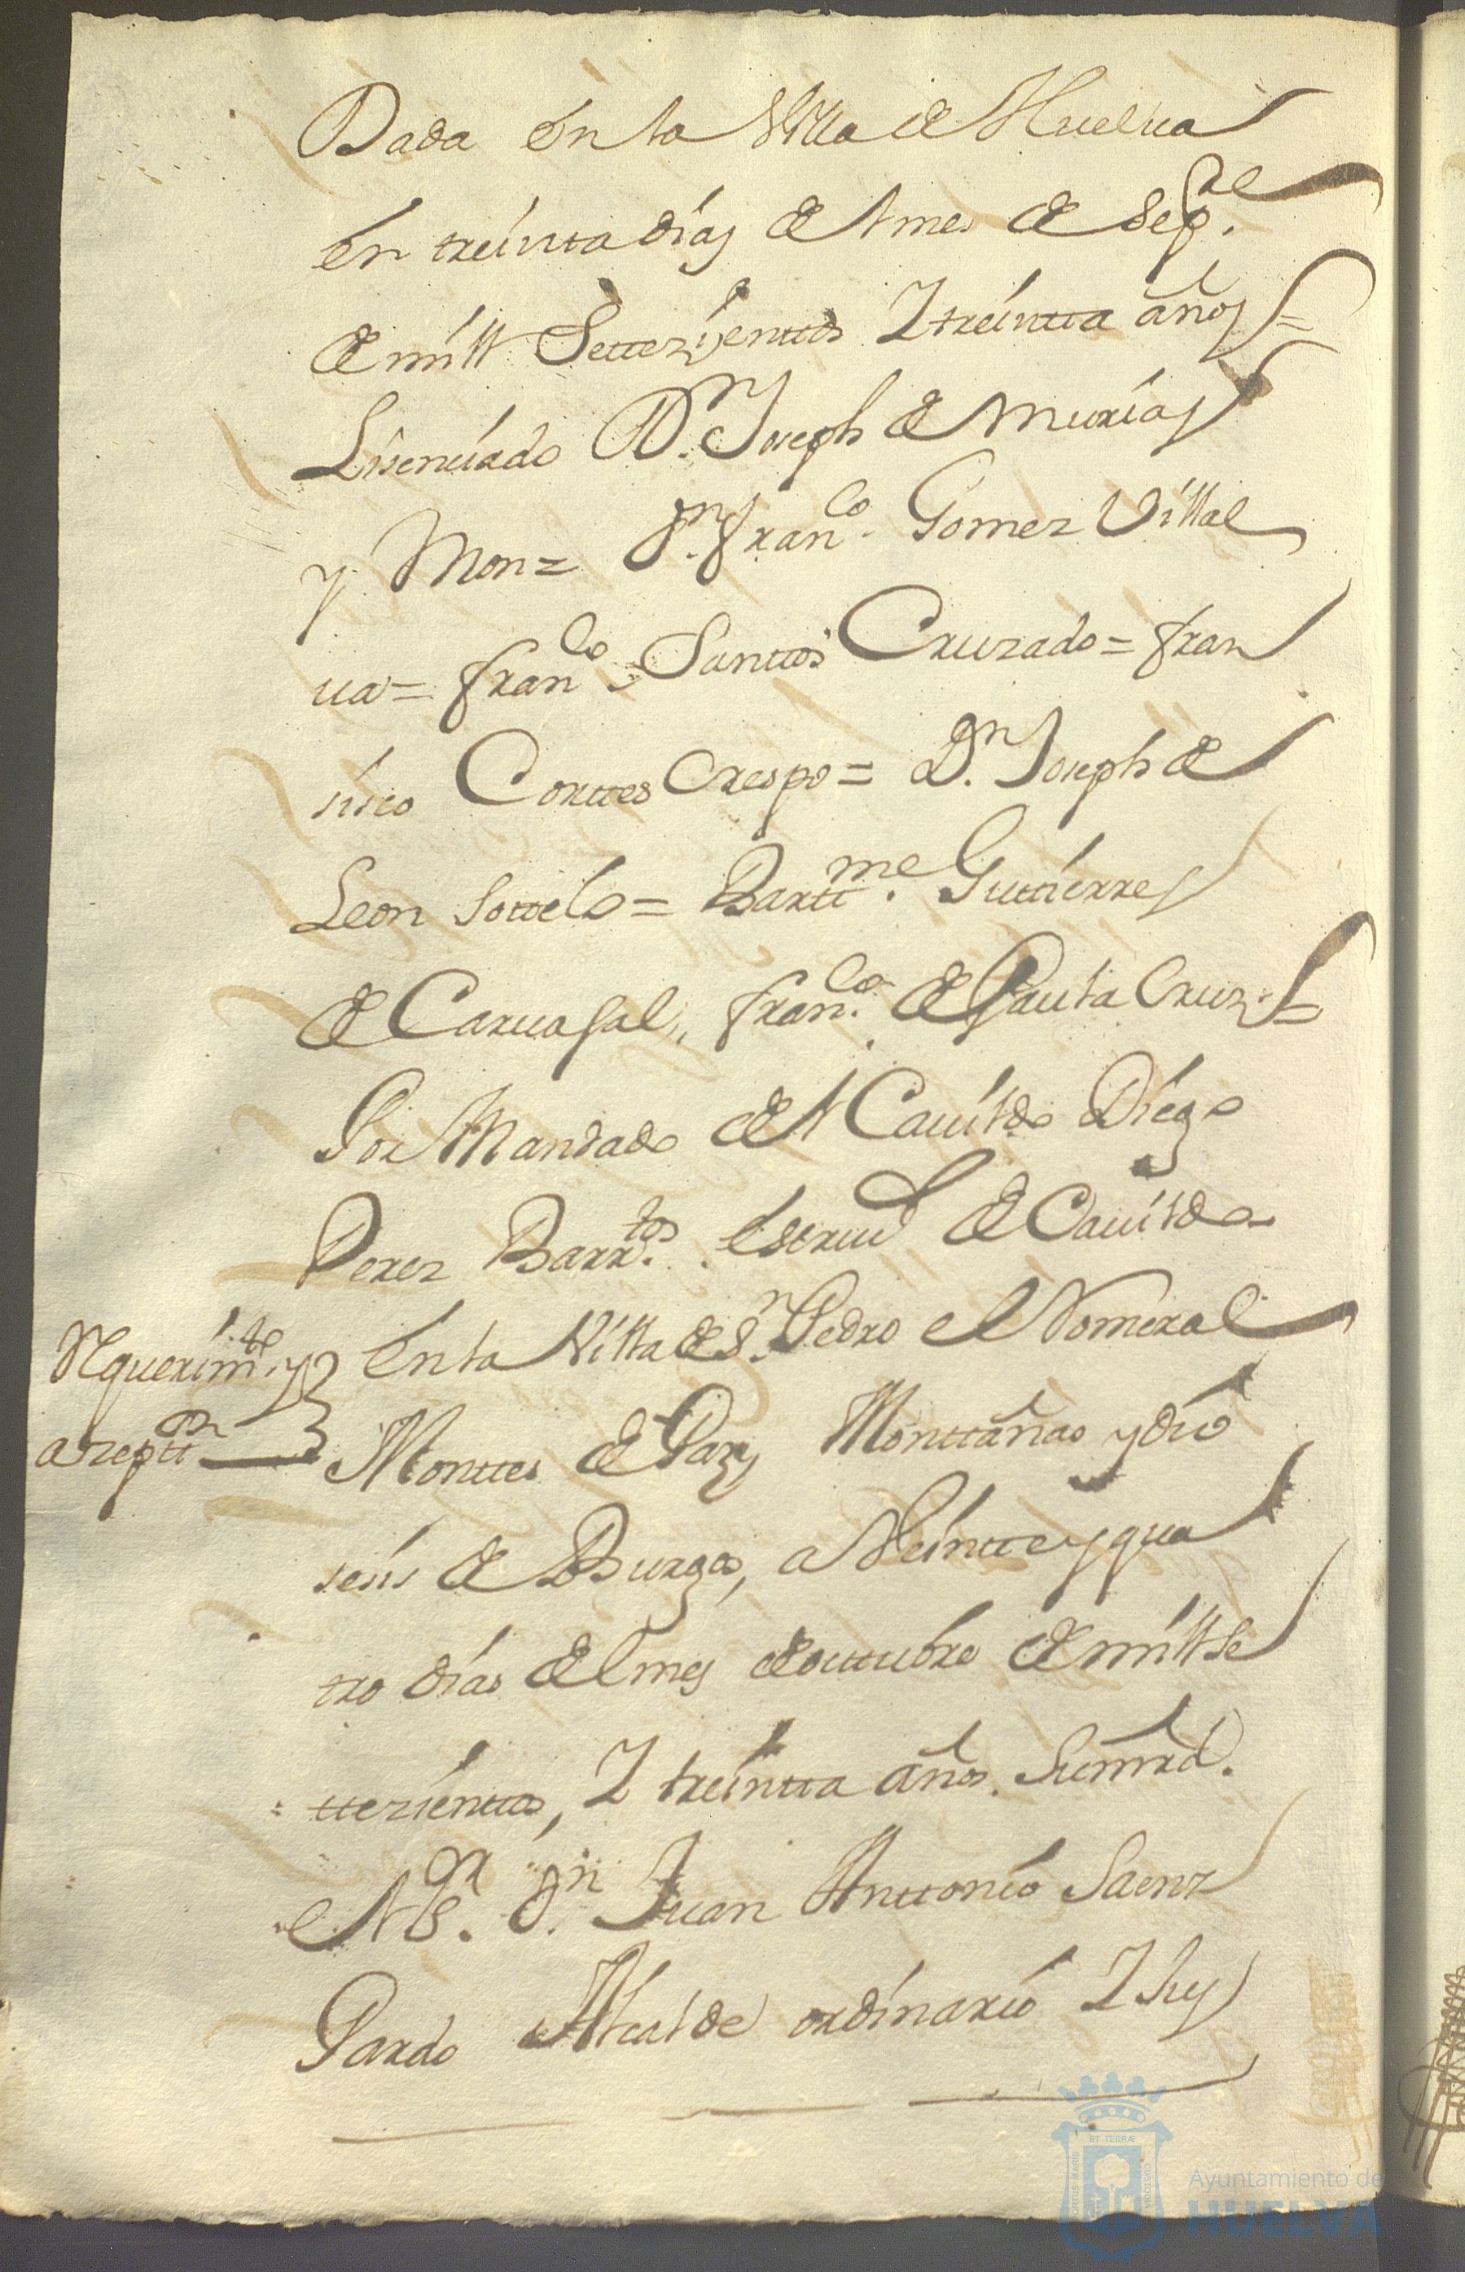 Dada en la Villa de Huelua
en treinta dias del mes de Sepre.
de mill Settezienttos Y treintta años =
Lisenciado Dn. Joseph de Murias
y Mon = Dn. Franco. Gomez Villal
ua = franco. Santtos Cruzado = fran
sisco Corttes Crespo = Dn. Joseph de
Leon Sottelo = Barttme. Gutierres
de Caruajal, franco. de Pauta Cruz =
Por Mandado del Cauildo Diego
Perez Barrtos. Escriuo de Cauildo
Requerimto. y
azeptton
En la Villa de Sn. Pedro el Romeral
Monttes de Paz, Monttañas y dio
sesis de Burgos, a Veintte y qua
tro dias del mes de outtubre de mill Se
ttezienttos, Y treintta años. Su mrd.
el Sor. Dn. Juan Anttonio Saenz
Pardo Alcalde ordinario Y Juez
Ayuntamiento de
HUELVA